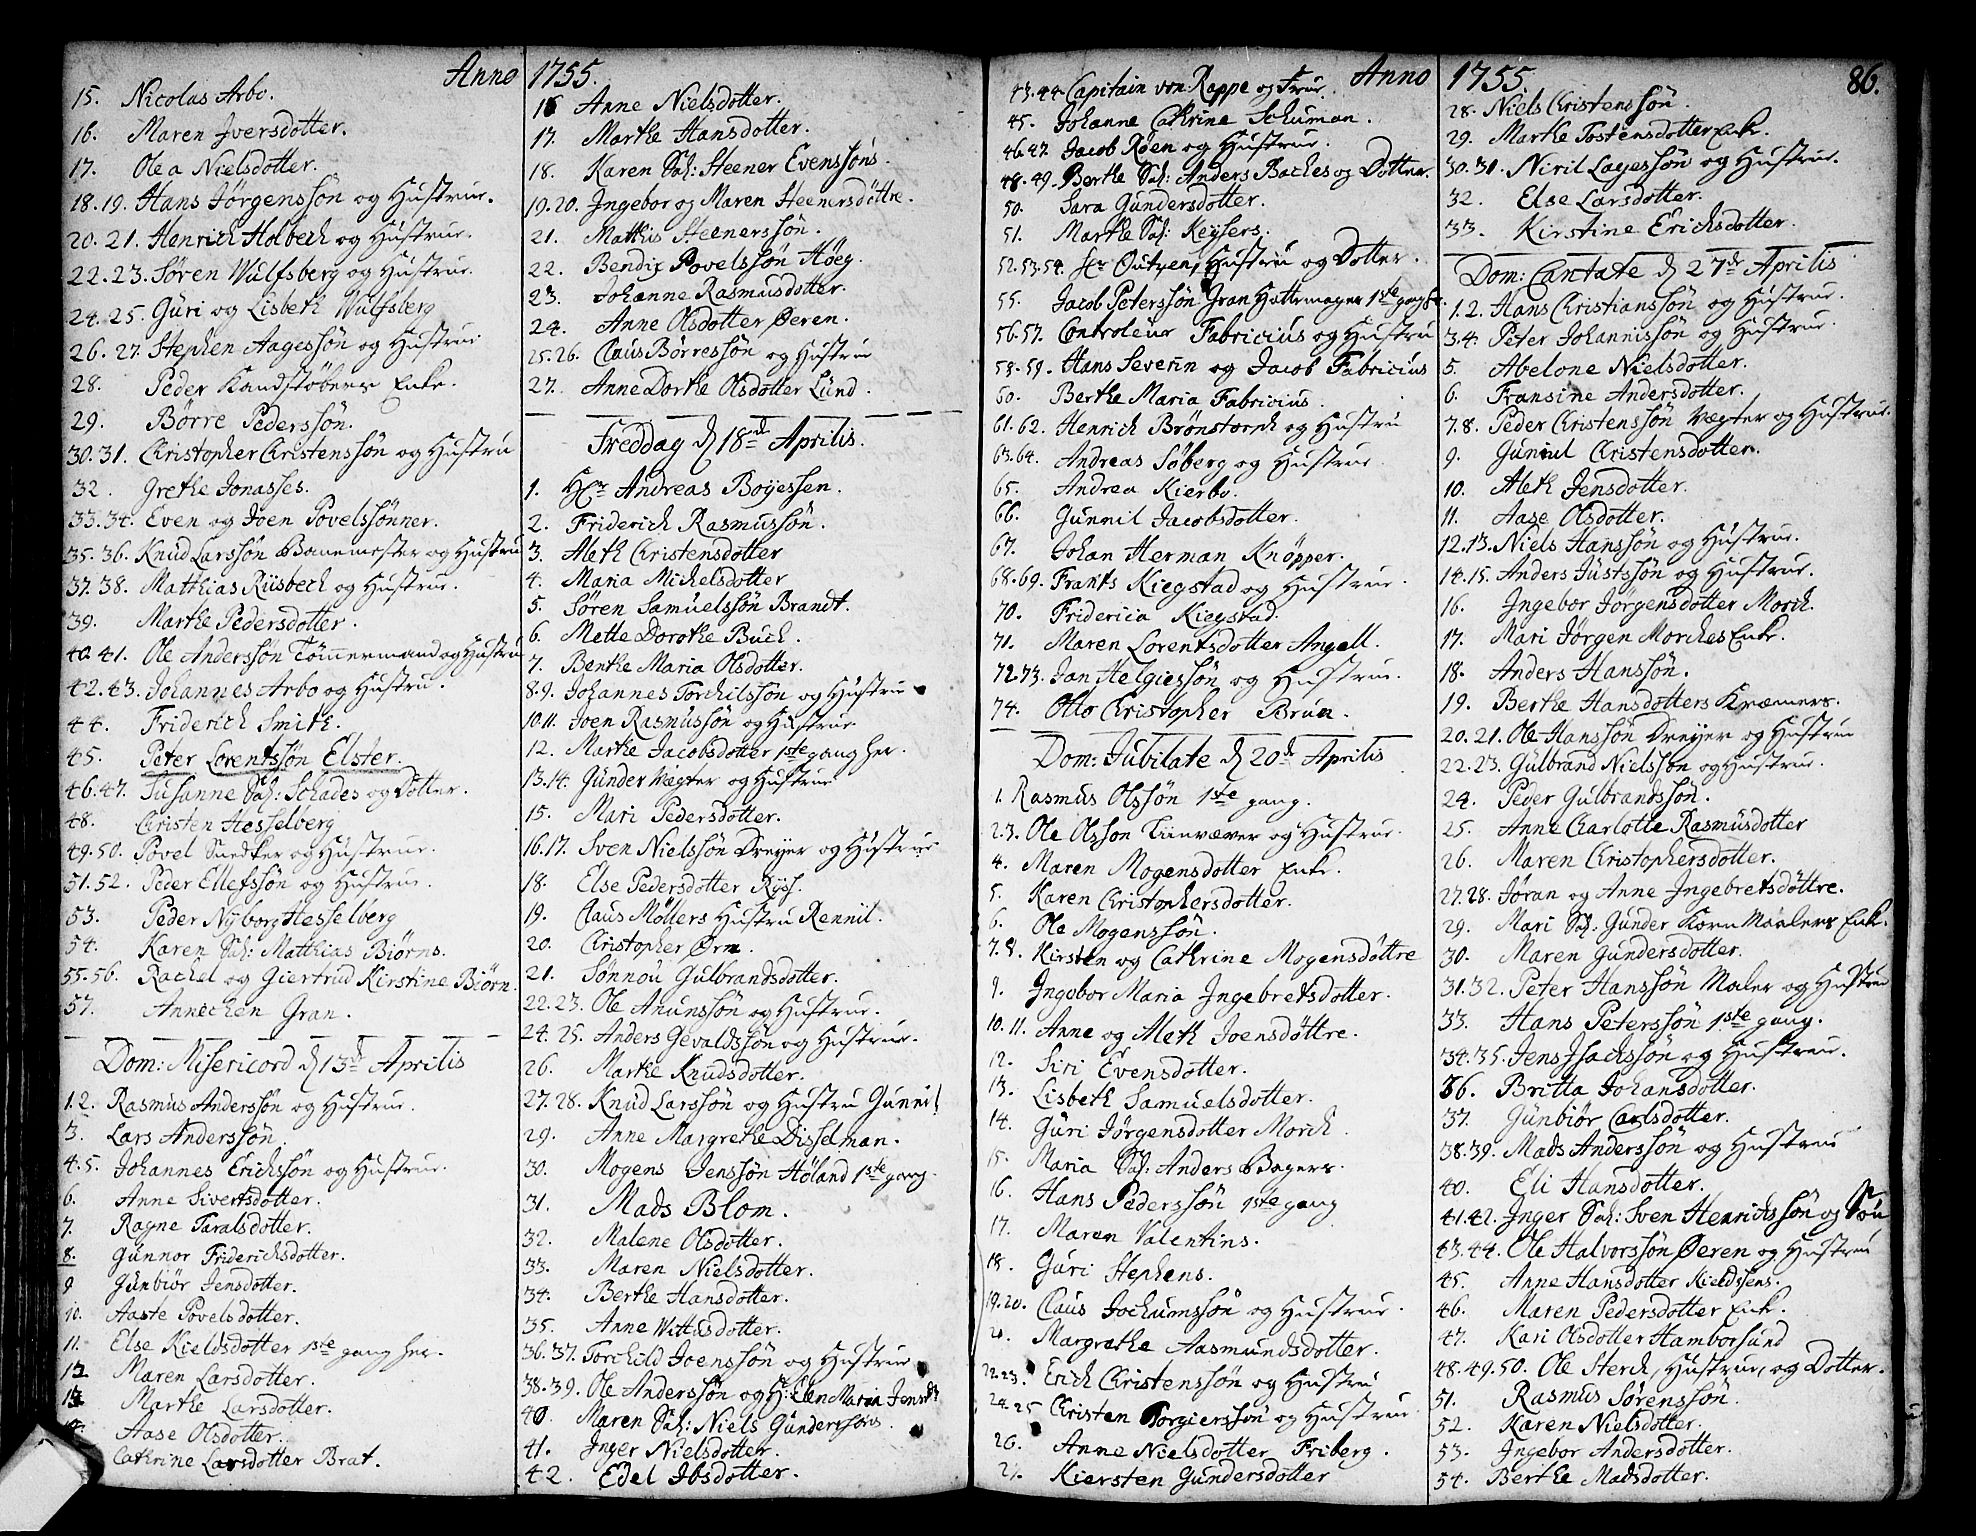 Anno 1755.
15. Nicolas Arbo.
16. Maren Iversdotter.
17. Olea Nielsdotter.
18. 19. Hans Jørgenssøn og Hustrue.
20. 21. Henrich Holbech og Hustrue.
22. 23. Søren Wulfsberg og Hustrue.
24. 25. Guri og Lisbeth Wulfsberg
26. 27. Stephen Aagessøn og Hustrue
28. Peder Kandstøbers Enke.
29. Børre Pederssøn.
30. 31. Christopher Christenssøn og Hustru
32. Grethe Jonasses.
33. 34. Even og Joen Povelssønner.
35. 36. Knud Larssøn Banemester og Hustru
37. 38. Matthias Riisbech og Hustrue.
39. Marthe Pedersdotter.
40. 41. Ole Anderssøn Tømmermand og Hustru
42. 43. Johannes Arbo og Hustru.
44. Friderich Smith.
45. Peter Lorentssøn Elster.
46. 47. Susanne Sal: Schades og Dotter.
48. Christen Hesselberg
49. 50. Povel Snedker og Hustrue.
51. 52. Peder Ellefssøn og Hustrue.
53. Peder Nyborg Hesselberg
54. Karen Sal: Matthias Biørns.
55. 56. Rachel og Giertrud Kirstine Biørn.
57. Annichen Gran.
Dom: Misericord d 13de Aprilis
1. 2. Rasmus Anderssøn og Hustrue.
3. Lars Anderssøn.
4. 5. Johannes Erichssøn og Hustrue.
6. Anne Sivertsdotter.
7. Ragne Taralsdotter.
8. Gunnor Friderichsdotter.
9 Gunbiør Jensdotter.
10. Aaste Povelsdotter.
11. Else Kieldsdotter 1ste gang her.
12 Maren Larsdotter.
13 Marthe Larsdotter.
14. Aase Olsdotter.
Cathrine Larsdotter Brat.
16 Anne Nielsdotter.
17. Marthe Hansdotter.
18. Karen Sal: Steener Evenssøns.
19. 20. Ingebor og Maren Steenersdøttre.
21. Matthis Steenerssøn.
22. Bendix Povelssøn Høeg.
23. Johanne Rasmusdotter.
24. Anne Olsdotter Øeren.
25. 26. Claus Børressøn og Hustrue
27. Anne Dorthe Olsdotter Lund.
Freddag d 18de Aprilis.
1. Hr Andreas Boyessen.
2. Friderich Rasmussøn.
3. Aleth Christensdotter
4. Maria Michelsdotter
5. Søren Samuelssøn Brandt.
6. Mette Dorothe Buch.
7. Benthe Maria Olsdotter.
8. 9. Johannes Torchilssøn og Hustrue
10. 11. Joen Rasmussøn og Hustrue
12. Marthe Jacobsdotter 1ste gang her.
13. 14. Gunder Vægter og Hustrue
15. Mari Pedersdotter.
16. 17. Sven Nielssøn Dreyer og Hustrue
18. Else Pedersdotter Rysh.
19. Claus Møllers Hustru Rennil.
20. Christopher Ørn.
21. Sønnou Gulbrandsdotter.
22. 23. Ole Anunssøn og Hustrue.
24. 25. Anders Gevaldssøn og Hustrue.
26. Marthe Knudsdotter.
27. 28. Knud Larssøn og Hustru Gunnil
29. Anne Margrethe Disselman.
30. Mogens Jenssøn Høland 1ste gang.
31. Mads Blom.
32. Malene Olsdotter.
33. Maren Nielsdotter.
34. Berthe Hansdotter.
35. Anne Wittisdotter.
36. 37. Torchild Joenssøn og Hustrue
38. 39. Ole Anderssøn og H: Elen Maria Jensd
40. Maren Sal: Niels Gunderssøns.
41. Inger Nielsdotter.
42. Edel Ibsdotter.
Anno 1755 86.
43. 44. Capitain von Rappe og Frue.
45. Johanne Cathrine Schuman.
46. 47. Jacob Røen og Hustrue.
48. 49. Berthe Sal: Anders Baches og Dotter.
50. Sara Gundersdotter.
51. Marthe Sal: Keysers.
52. 53. 54. Hr Outzen, Hustru og Dotter.
55. Jacob Peterssøn Gran Hattemager 1ste gang h.
56. 57. Controleur Fabricius og Hustru
58. 59. Hans Severin og Jacob Fabricius
60. Berthe Maria Fabricius.
61. 62. Henrich Brønstorph og Hustru
63. 64. Andreas Søberg og Hustrue.
65. Andrea Kierbo.
66. Gunnil Jacobsdotter.
67. Johan Herman Knøpper.
68. 69. Frants Kiegstad og Hustrue.
70. Fridericia Kiegstad.
71. Maren Lorentsdotter Angell.
72. 73. Jan Helgiessøn og Hustrue.
74. Otto Christopher Brun.
Dom: Jubilate d 20de Aprilis
1. Rasmus Olssøn 1ste gang.
2. 3. Ole Olsson Liinvæver og Hustrue.
4. Maren Mogensdotter Enke.
5. Karen Christophersdotter.
6. Ole Mogenssøn.
7. 8. Kirsten og Cathrine Mogensdøttre
9. Ingebor Maria Ingebretsdotter.
10. 11. Anne og Aleth Joensdøttre.
12. Siri Evensdotter.
13. Lisbeth Samuelsdotter.
14. Guri Jørgensdotter Morch.
15. Maria Sal: Anders Bagers.
16. Hans Pederssøn 1ste gang
17. Maren Valentins.
18. Guri Stephens.
19. 20. Claus Jochumssøn og Hustrue.
21. Margrethe Aasmundsdotter.
22. 23. Erich Christenssøn og Hustru
24. 25 Christen Torgierssøn og Hustrue
26. Anne Nielsdotter Friberg.
27. Kiersten Gundersdotter
28. Niels Christenssøn.
29. Marthe Tostensdotter Enke.
30. 31. Niril Lagessøn og Hustrue.
32. Else Larsdotter.
33. Kirstine Erichsdotter.
Dom: Cantate d 27de Aprilis
1. 2. Hans Christianssøn og Hustrue.
3. 4. Peter Johannissøn og Hustrue.
5. Abelone Nielsdotter.
6. Fransine Andersdotter.
7. 8. Peder Christenssøn Vægter og Hustrue.
9. Guniul Christensdotter.
10. Aleth Jensdotter.
11. Aase Olsdotter.
12. 13. Niels Hanssøn og Hustrue.
14. 15. Anders Justssøn og Hustrue.
16. Ingebor Jørgensdotter Morch.
17. Mari Jørgen Morches Enke.
18. Anders Hanssøn.
19. Berthe Hansdotters Kræmers.
20. 21. Ole Hanssøn Dreyer og Hustrue
22. 23. Gulbrand Nielssøn og Hustrue.
24. Peder Gulbrandssøn.
25. Anne Charlotte Rasmusdotter
26. Maren Christophersdotter.
27. 28. Jøran og Anne Ingebretsdøttre.
29. Mari Sal: Gunder Korn Maalers Enke.
30. Maren Gundersdotter.
31. 32. Peter Hanssøn Maler og Hustrue
33. Hans Peterssøn 1ste gang.
34. 35. Jens Isachssøn og Hustrue.
36. Britta Johansdotter.
37. Gunbiør Carlsdotter.
38. 39. Mads Anderssøn og Hustrue
40. Eli Hansdotter.
41. 42. Inger Sal: Sven Henrichssøn og Søn
43. 44. Ole Halvorssøn Øeren og Hustrue
45. Anne Hansdotter Kieldssens.
46. Maren Pedersdotter Enke.
47. Kari Olsdotter Hamborsund
48. 49. 50. Ole Sterch, Hustrue, og Dotter.
51. Rasmus Sørenssøn.
52. Karen Nielsdotter.
53. Ingebor Andersdotter.
54. Berthe Madsdotter.